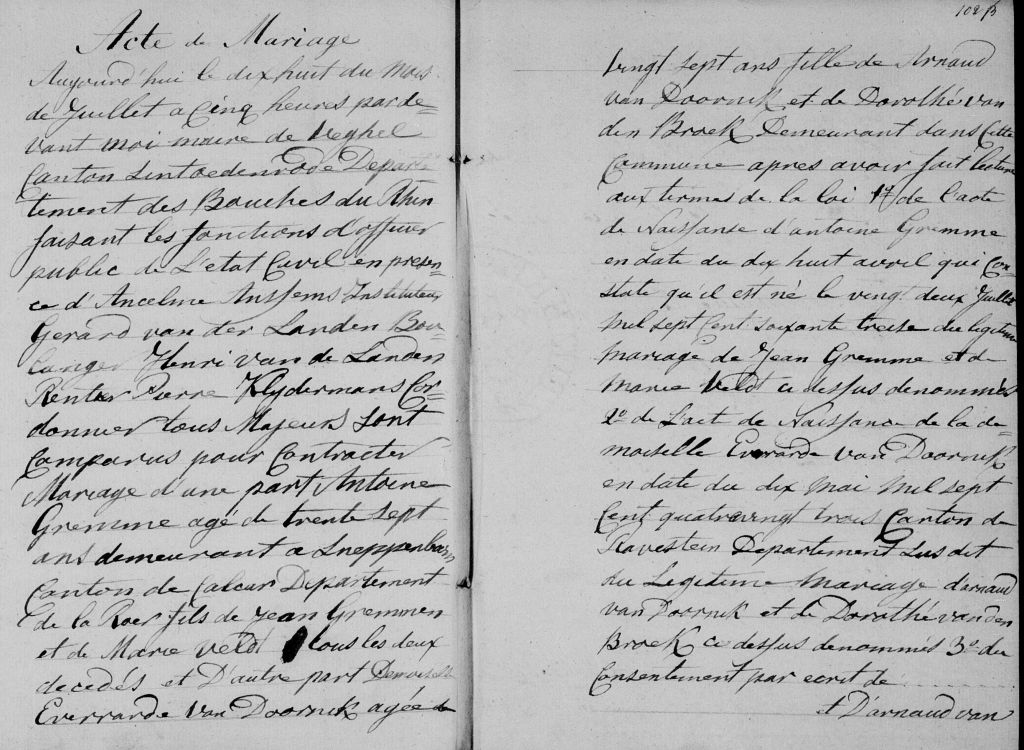 Acte de Mariage
Aujourd'hui le dix huit du Mois
de Juillet a Cinq heures par de=
vant moi maire de Veghel
Canton Sintoedenrode Depar=
tement des Bouches du Rhin
faisant les fonctions d'officier
public de L'etat Civil en presen=
ce d'Ancelme Anssems Instituteur
Gerard van der Landen Bou=
langer Henri van de Landen
Rentier Pierre Klydermans Cor=
donnier tous Majeurs sont
Comparus pour Contracter
Mariage d'une part Antoine
Gremme agé de trente sept
ans demeurant a
Canton de Calcar Departement
de la Roer fils de Jean Gremmen
et de Marie Veldt tous les deux
decedés et D'autre part Demoiselle
Everrarde van Doornik agée de
102 B
vingt sept ans fille de Arnaud
van Doornik et de Dorothé van
den Broek Demeurant dans Cette
Commune apres avoir fait lecture
aux termes de la loi 1º de l'acte
de Naissanse d'antoine Gremme
en date du dix huit avril qui Con=
state qu'il est né le vingt deux Juillet
Mil sept Cent soixante treise du legitime
Mariage de Jean Gremme et de
Marie Veldt ci dessus denommés
2º de L'act de Naissance de la de=
moiselle Everarde van Doornik
en date du dix Mai Mil sept
Cent quatrevingt trois Canton de
Ravestein Departement susdit
du Legitime Mariage d'arnaud
van Doornik et de Dorothé van den
Broek ce dessus denommés 3º du
Consentement par ecrit de
et D'arnaud van